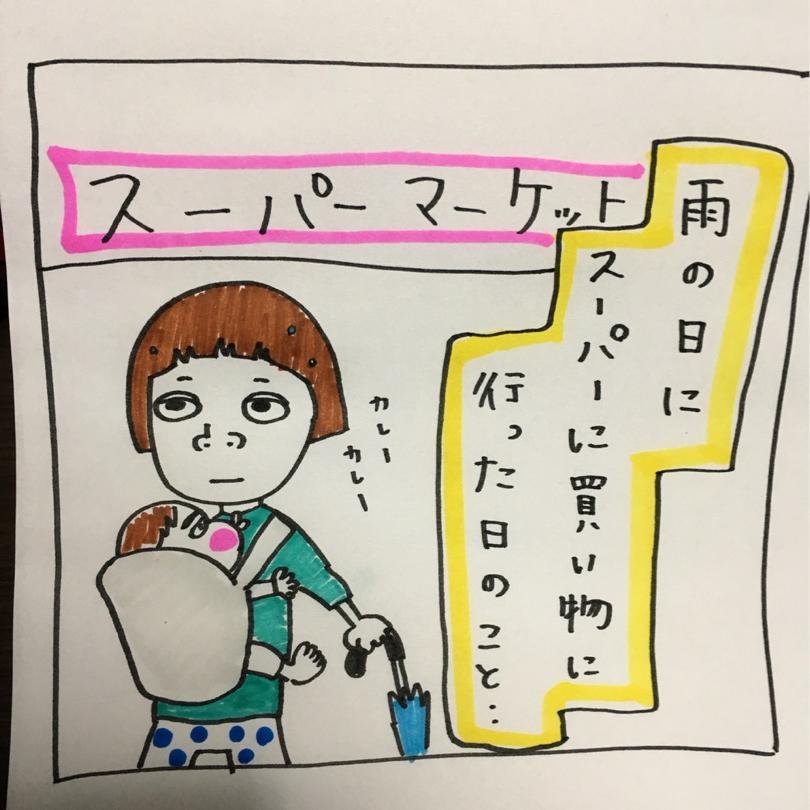 スーパーマーケット
雨の日に
スーパーに買い物に
行った日のこと‥
カレー
カレー